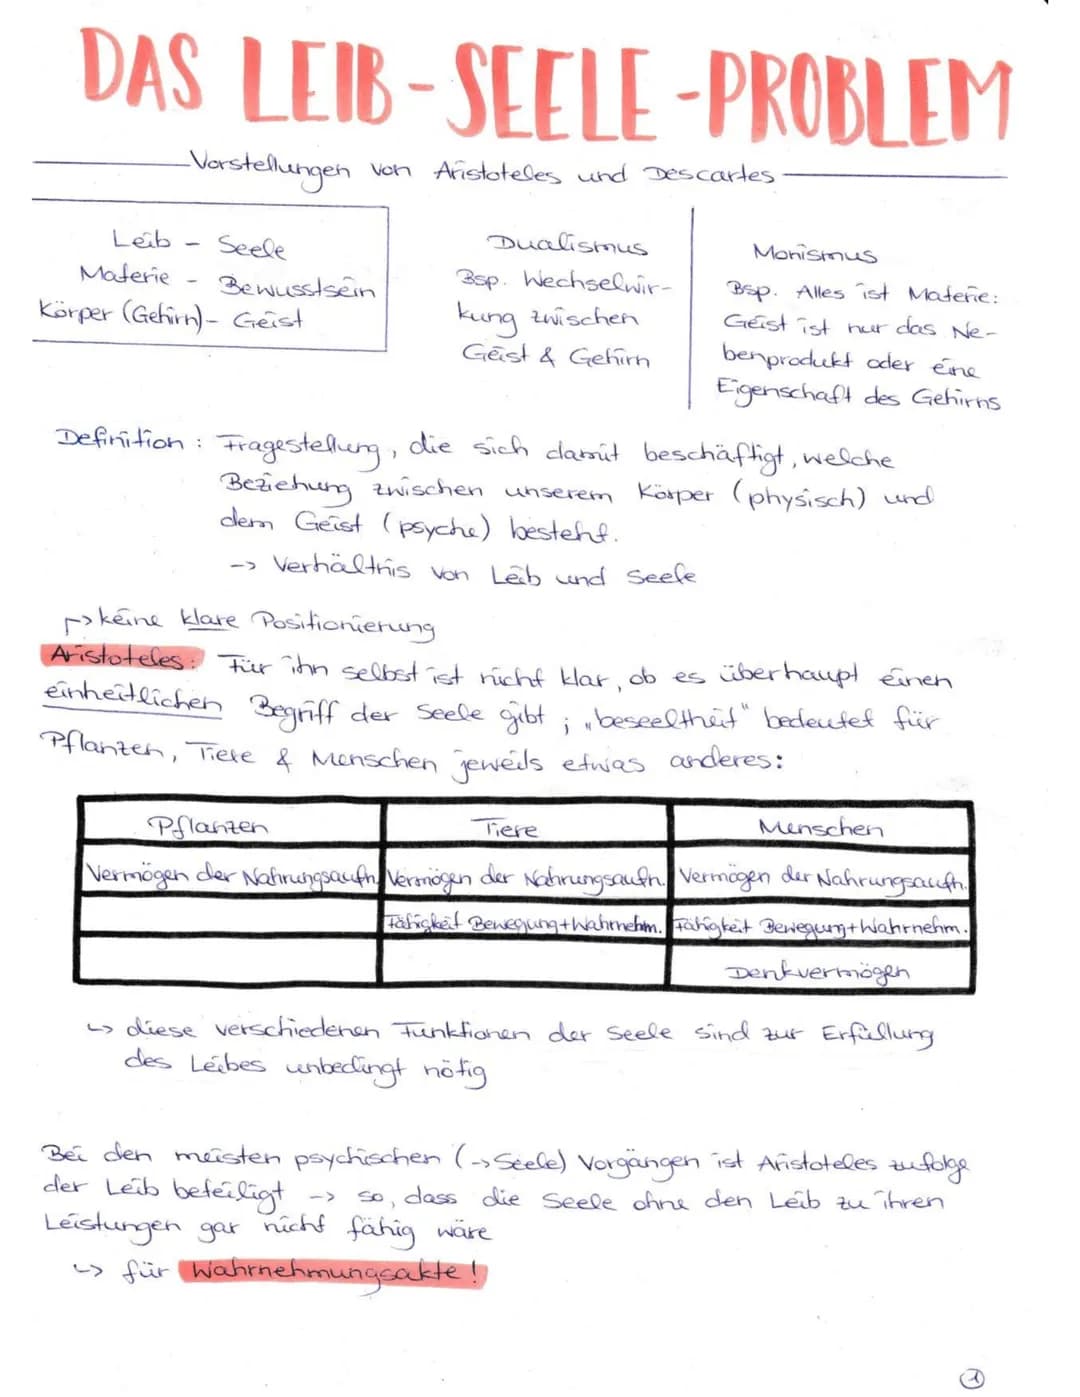 DAS LEIB-SEELE-PROBLEM
Vorstellungen von Aristoteles und Descartes
Leib - Seele
Materie - Bewusstsein
Körper (Gehirn) - Geist
Dualismus
Bsp. Wechselwir-
kung zwischen
Geist & Gehirn
Monismus
Bsp. Alles ist Materie:
Geist ist nur das Ne-
benprodukt oder eine
Eigenschaft des Gehirns
Definition: Fragestellung, die sich damit beschäftigt, welche
Beziehung zwischen unserem Körper (physisch) und
dem Geist (psyche) besteht.
-> Verhältnis von Leib und Seele
-> keine klare Positionierung
Aristoteles: Für ihn selbst ist nicht klar, ob es überhaupt einen
einheitlichen Begriff der Seele gibt; „beseeltheit" bedeutet für
Pflanzen, Tiere & Menschen jeweils etwas anderes:
Pflanzen Tiere Menschen
Vermögen der Nahrungsaufn. Vermögen der Nahrungsaufn. Vermögen der Nahrungsaufn.
Fähigkeit Bewegung+Wahrnehm. Fähigkeit Bewegung+Wahrnehm.
Denkvermögen
↳ diese verschiedenen Funktionen der Seele sind zur Erfüllung
des Leibes unbedingt nötig
Bei den meisten psychischen (->Seele) Vorgängen ist Aristoteles zufolge
der Leib beteiligt -> so, dass die Seele ohne den Leib zu ihren
Leistungen gar nicht fähig wäre
↳ für Wahrnehmungsakte!
1